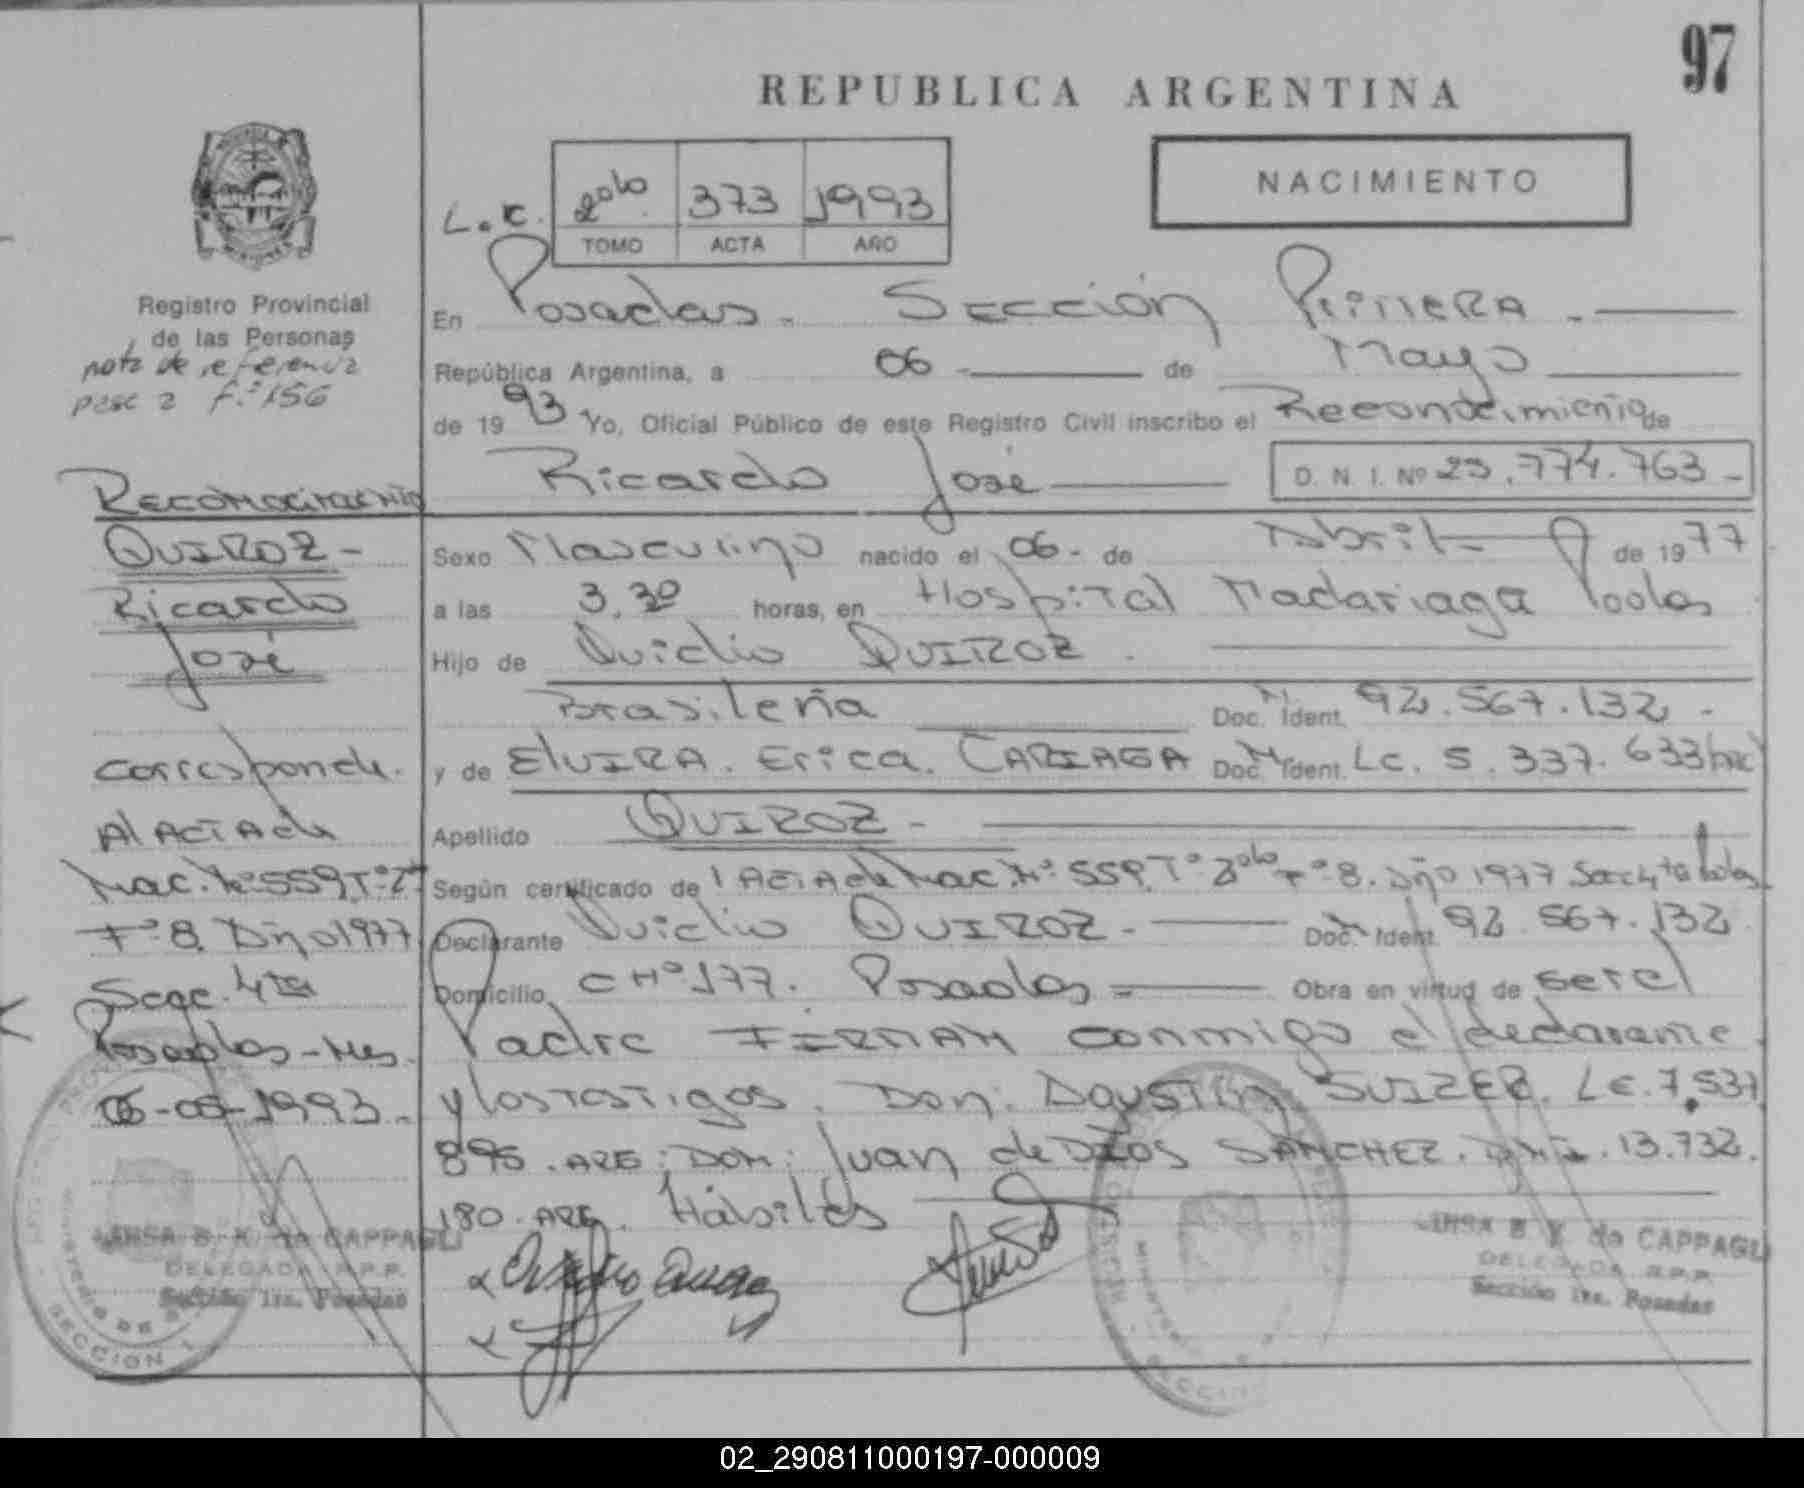 97
REPUBLICA ARGENTINA
NACIMIENTO
L.C. 2do 373 1993
TOMO ACTA AÑO
Registro Provincial
de las Personas
nota de referencia
pase a f.º 156
En Posadas. Sección Primera
República Argentina, a 06 de Mayo
de 1993 Yo, Oficial Público de este Registro Civil inscribo el Reconocimiento de
Ricardo José D. N. I. Nº 25.774.763
Reconocimiento
QUIROZ
Ricardo
José
Sexo Masculino nacido el 06 de Abril de 1977
a las 3.30 horas, en Hospital Madariaga Posdas
Hijo de Ovidio QUIROZ
Brasileña Doc. Ident. M 92.567.132
y de ElVIRA. Erica. CARIAGA Doc. Ident. M LC. 5.337.633
Apellido QUIROZ
Corresponde
Al Acta de
Nac. Nº 559, Tº 2º
Fº 8. Año 1977
Secc. 4ta
Posadas-Mes.
06-05-1993
Según certificado de Acta de Nac. Nº 559. Tº 2do Fº 8. Año 1977 Secc 4ta Posdas
Declarante Ovidio QUIROZ Doc. Ident. 92.567.132
Domicilio CH º 177. Posadas Obra en virtud de ser el
Padre FIRMAN conmigo el declarante
y los testigos. Don: Agustín SUIZER. LE. 7.537
895. ARG; DON: Juan de Dios SANCHEZ. DNI. 13.732.
180. ARG. Hábiles
B. K. de CAPPAGLI
DELEGADA R.P.P.
Sección 1ra. Posadas
B. K. de CAPPAGLI
DELEGADA R.P.P.
Sección 1ra. Posadas
SECCION 1
02_290811000197-000009